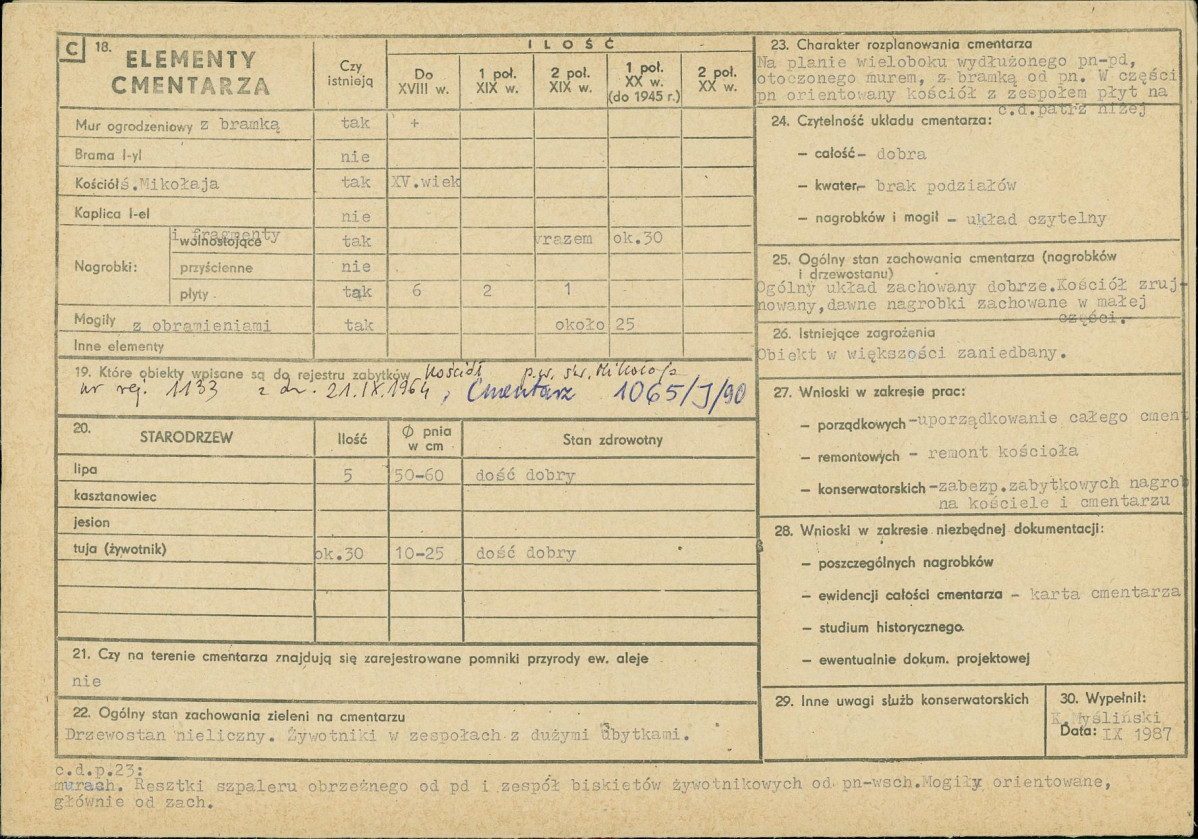 C 18. ELEMENTY CMENTARZA
Czy istnieją
ILOŚĆ
Do XVIII w.
1 poł. XIX w.
2 poł. XIX w.
1 poł. XX w. (do 1945 r.)
2 poł. XX w.
Mur ogrodzeniowy z bramką tak +
Brama I-yl nie
Kościół ś.Mikołaja tak XV.wiek
Kaplica I-el nie
Nagrobki:
i fragmenty
wolnostojące tak wrazem ok.30
przyścienne nie
płyty tak 6 2 1
Mogiły z obramieniami tak około 25
Inne elementy
19. Które obiekty wpisane są do rejestru zabytków Kościół p.w. św. Mikołaja
nr rej. 1133 z dn. 21.IX.1964, Cmentarz 1065/J/90
20. STARODRZEW Ilość Ø pnia w cm Stan zdrowotny
lipa 5 50-60 dość dobry
kasztanowiec
jesion
tuja (żywotnik) ok.30 10-25 dość dobry
21. Czy na terenie cmentarza znajdują się zarejestrowane pomniki przyrody ew. aleje
nie
22. Ogólny stan zachowania zieleni na cmentarzu
Drzewostan nieliczny. Żywotniki w zespołach z dużymi ubytkami.
23. Charakter rozplanowania cmentarza
Na planie wieloboku wydłużonego pn-pd,
otoczonego murem, z bramką od pn. W części
pn orientowany kościół z zespołem płyt na
c.d.patrz niżej
24. Czytelność układu cmentarza:
— całość— dobra
— kwater— brak podziałów
— nagrobków i mogił — układ czytelny
25. Ogólny stan zachowania cmentarza (nagrobków
i drzewostanu)
Ogólny układ zachowany dobrze.Kościół zruj-
nowany,dawne nagrobki zachowane w małej
części.
26. Istniejące zagrożenia
Obiekt w większości zaniedbany.
27. Wnioski w zakresie prac:
— porządkowych-uporządkowanie całego cment
— remontowych - remont kościoła
— konserwatorskich-zabezp.zabytkowych nagrob
na kościele i cmentarzu
28. Wnioski w zakresie niezbędnej dokumentacji:
— poszczególnych nagrobków
— ewidencji całości cmentarza - karta cmentarza
— studium historycznego.
— ewentualnie dokum. projektowej
29. Inne uwagi służb konserwatorskich
30. Wypełnił:
K.Myśliński
Data: IX 1987
c.d.p.23:
murach. Resztki szpaleru obrzeżnego od pd i zespół biskietów żywotnikowych od pn-wsch.Mogiły orientowane,
głównie od zach.